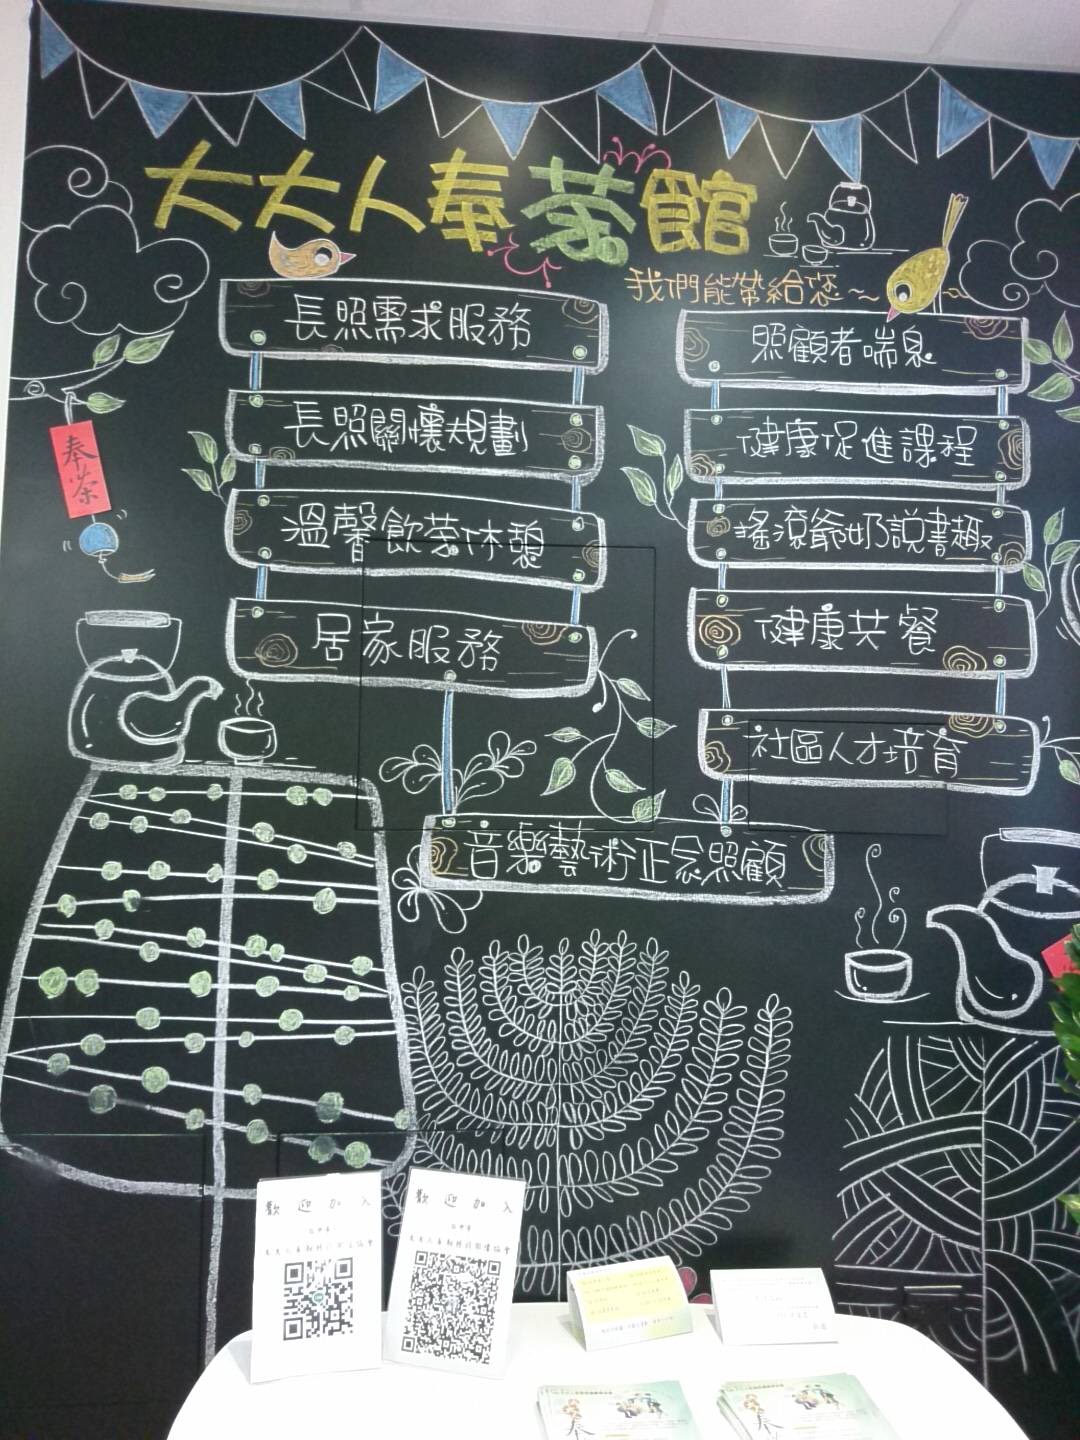 大大人奉茶館
我們能帶給您~~
長照需求服務
長照關懷規劃
溫馨飲茶休憩
居家服務
照顧者喘息
健康促進課程
搖滾爺奶説書趣
健康共餐
社區人才培育
音樂藝術正念照顧
奉茶
歡迎加入
歡迎加入